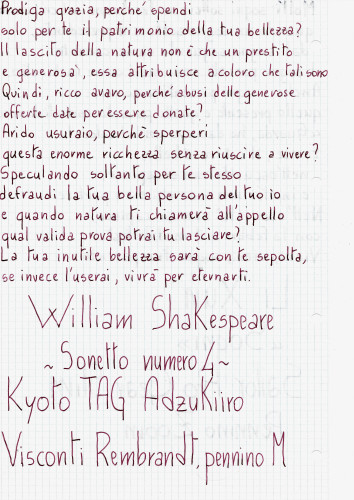 Prodiga grazia, perché spendi
solo per te il patrimonio della tua bellezza?
Il lascito della natura non è che un prestito
e generosa, essa attribuisce a coloro che tali sono
Quindi, ricco avaro, perché abusi delle generose
offerte date per essere donate?
Arido usuraio, perché sperperi
questa enorme ricchezza senza riuscire a vivere?
Speculando soltanto per te stesso
defraudi la tua bella persona del tuo io
e quando natura ti chiamerà all'appello
qual valida prova potrai tu lasciare?
La tua inutile bellezza sarà con te sepolta,
se invece l'userai, vivrà per eternarti.
William Shakespeare
~ Sonetto numero 4 ~
Kyoto TAG Adzukiiro
Visconti Rembrandt, pennino M